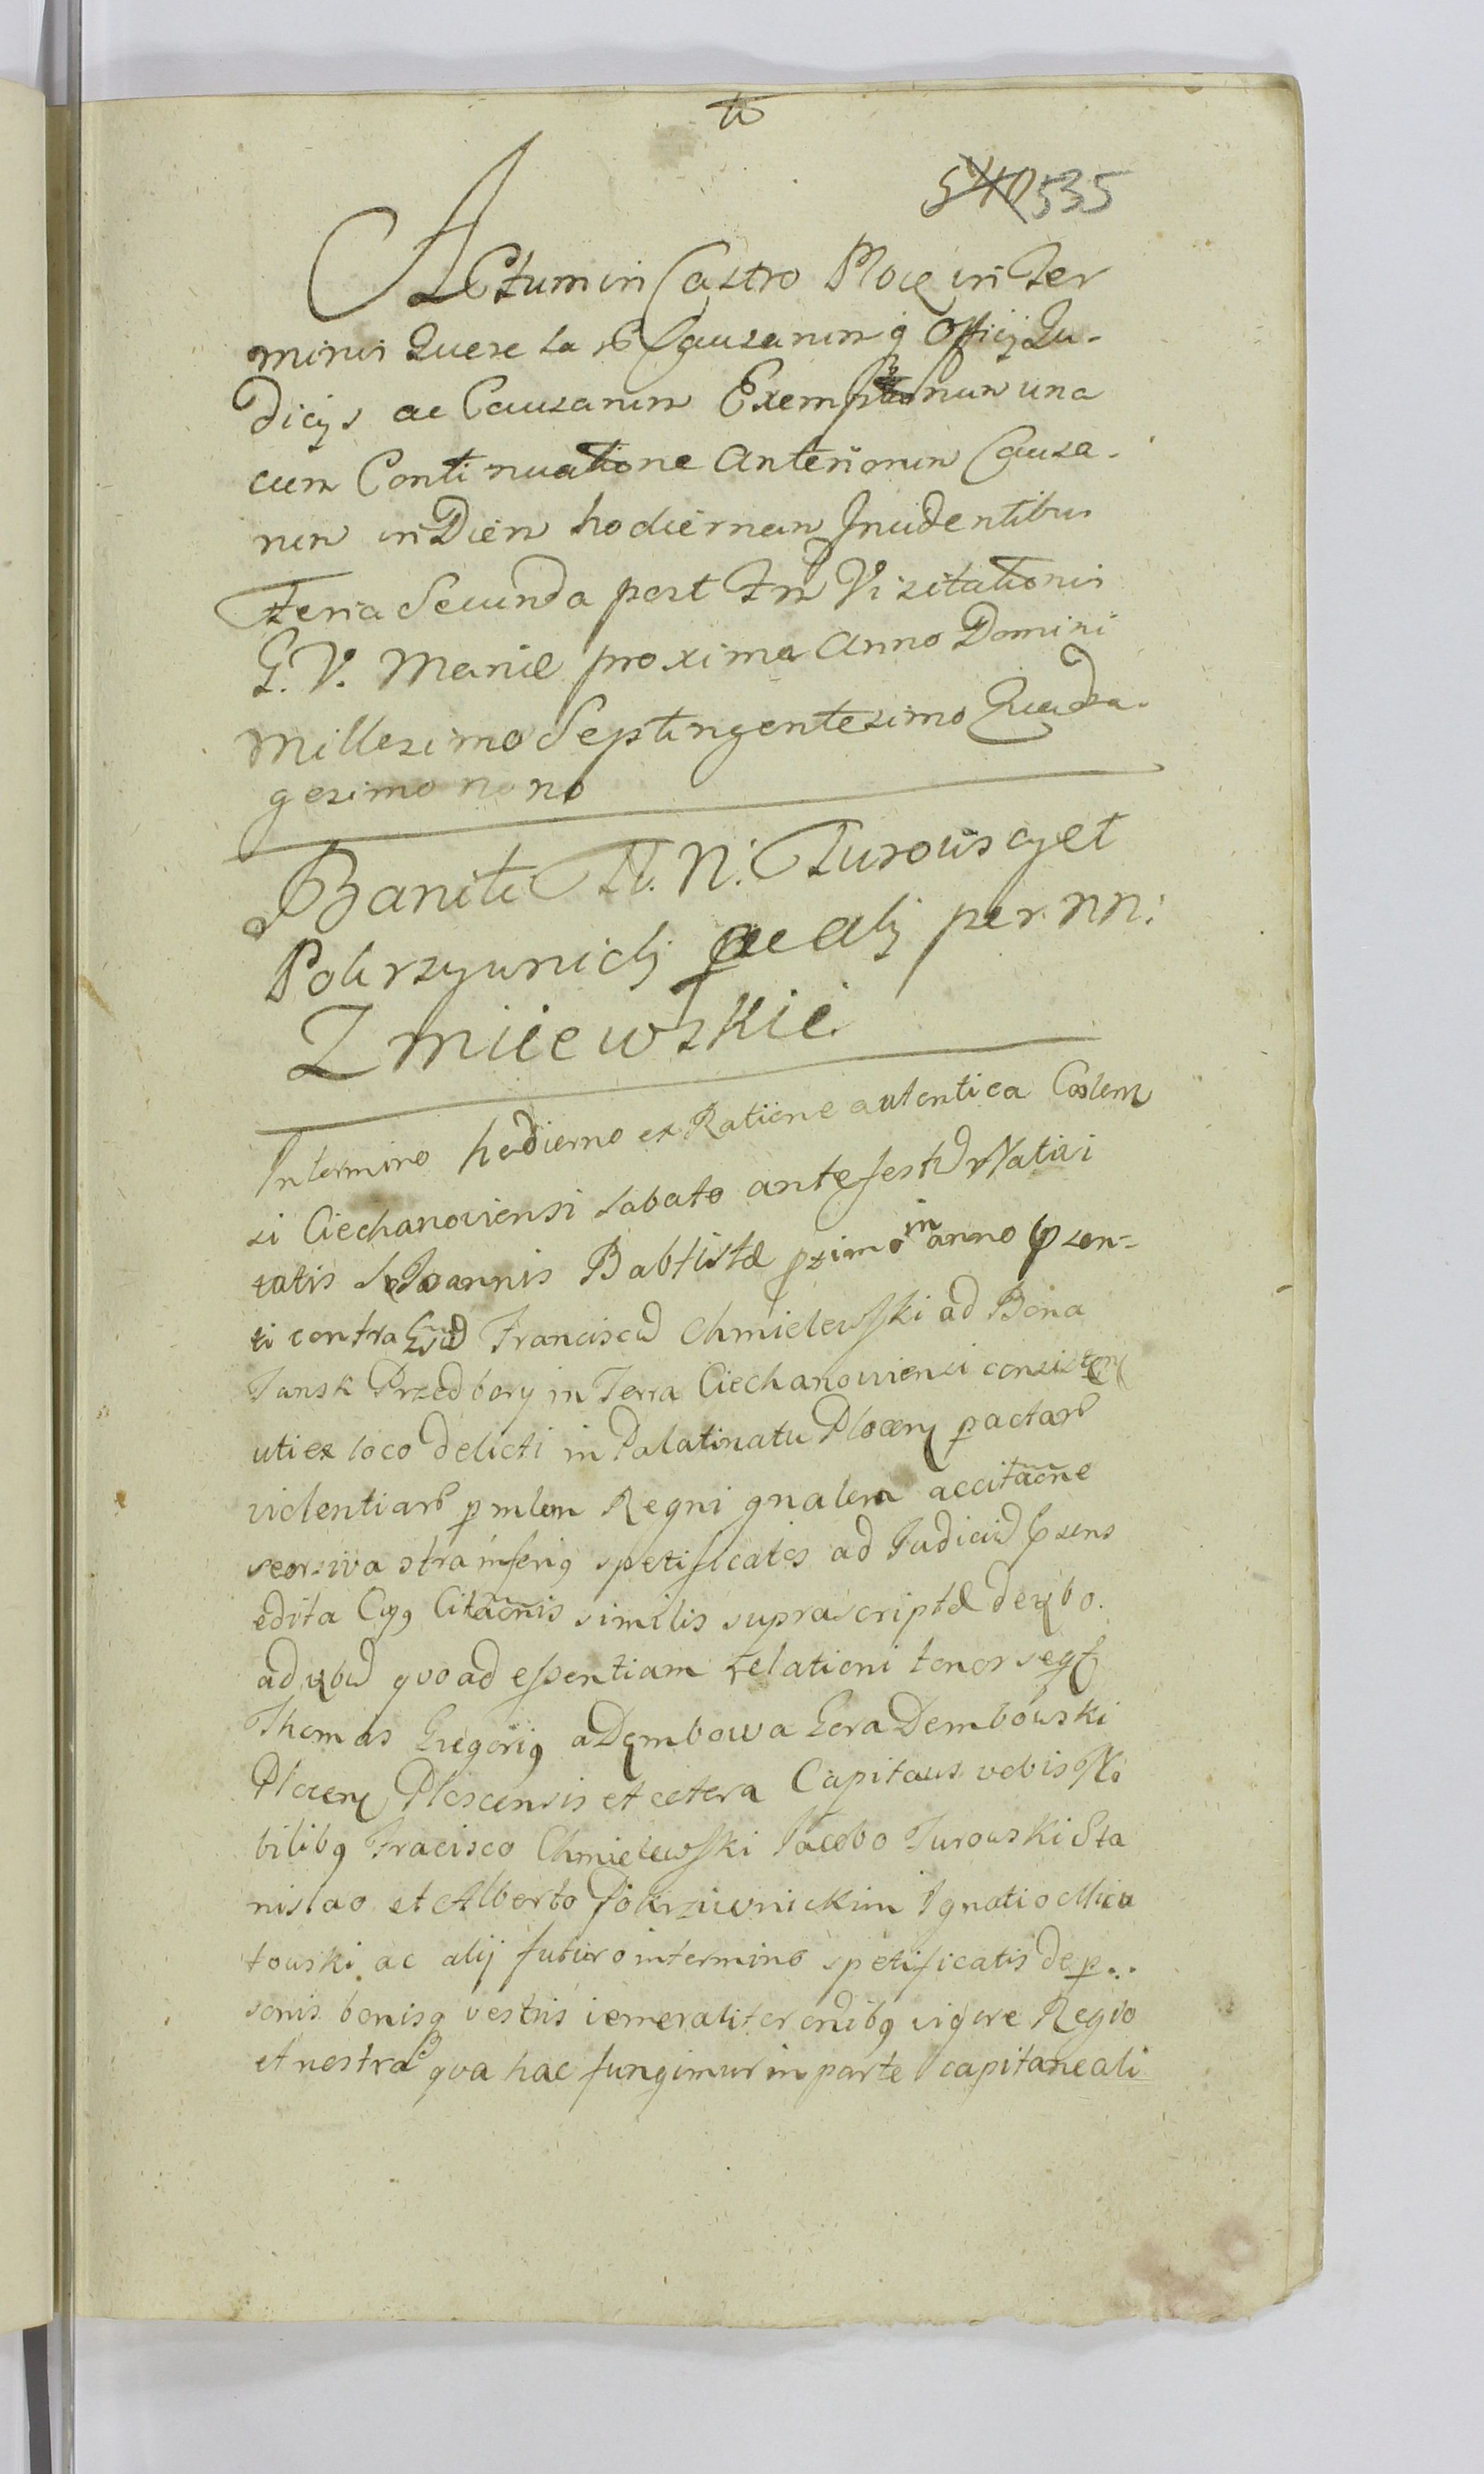 535
Actum in Castro Ploc in Ter
minis Querelarum Causarumq Officij Ju-
dicijs ac Causarum Exemptionum una
cum Continuatione Anteriorum Causa-
rum in Diem hodiernam Incidentibus
Feria Secunda post Fm Visitationis
B. V. Mariæ proxima Anno Domini
Millesimo Septingentesimo Quadra-
gesimo nono
Baniti N. N. Turowscy et
Pokrzywnicki ac alij per nn:
Zmiiewskie
In termino hodierno ex Ratione autentica Castren
si Ciechanoviensi Sabato ante festu Nativi
tatis S Joannis Babtistæ primo in anno præsen-
ti contra Franciscu Chmielewski ad Bona
Tansk Przedbory in Terra Ciechanowiensi consisten
uti ex loco delicti in Palatinatu Plocen patrar
violentiar p mlem Regni gnalem accitacne
seorsiva strainferiq spetificates ad Judiciu præsens
edita Cujq Citacnis similis suprascriptæ de verbo
ad verbu quo ad essentiam relationi tenor seqr
Thomas Gregoriq a Dembowa Gora Dembowski
Plocen Plocensis et cetera Capitaus vobis No
bilibq Fracisco Chmielewski Jacobo Turowski Sta
nislao et Alberto Pokrziwnickim Ignatio Mieca
towski ac alij futuro in termino spetificatis de p...
sonis bonisq vestris iemeraliter omibq vigore Regio
et nostra qva hac fungimur in parte capitaneali